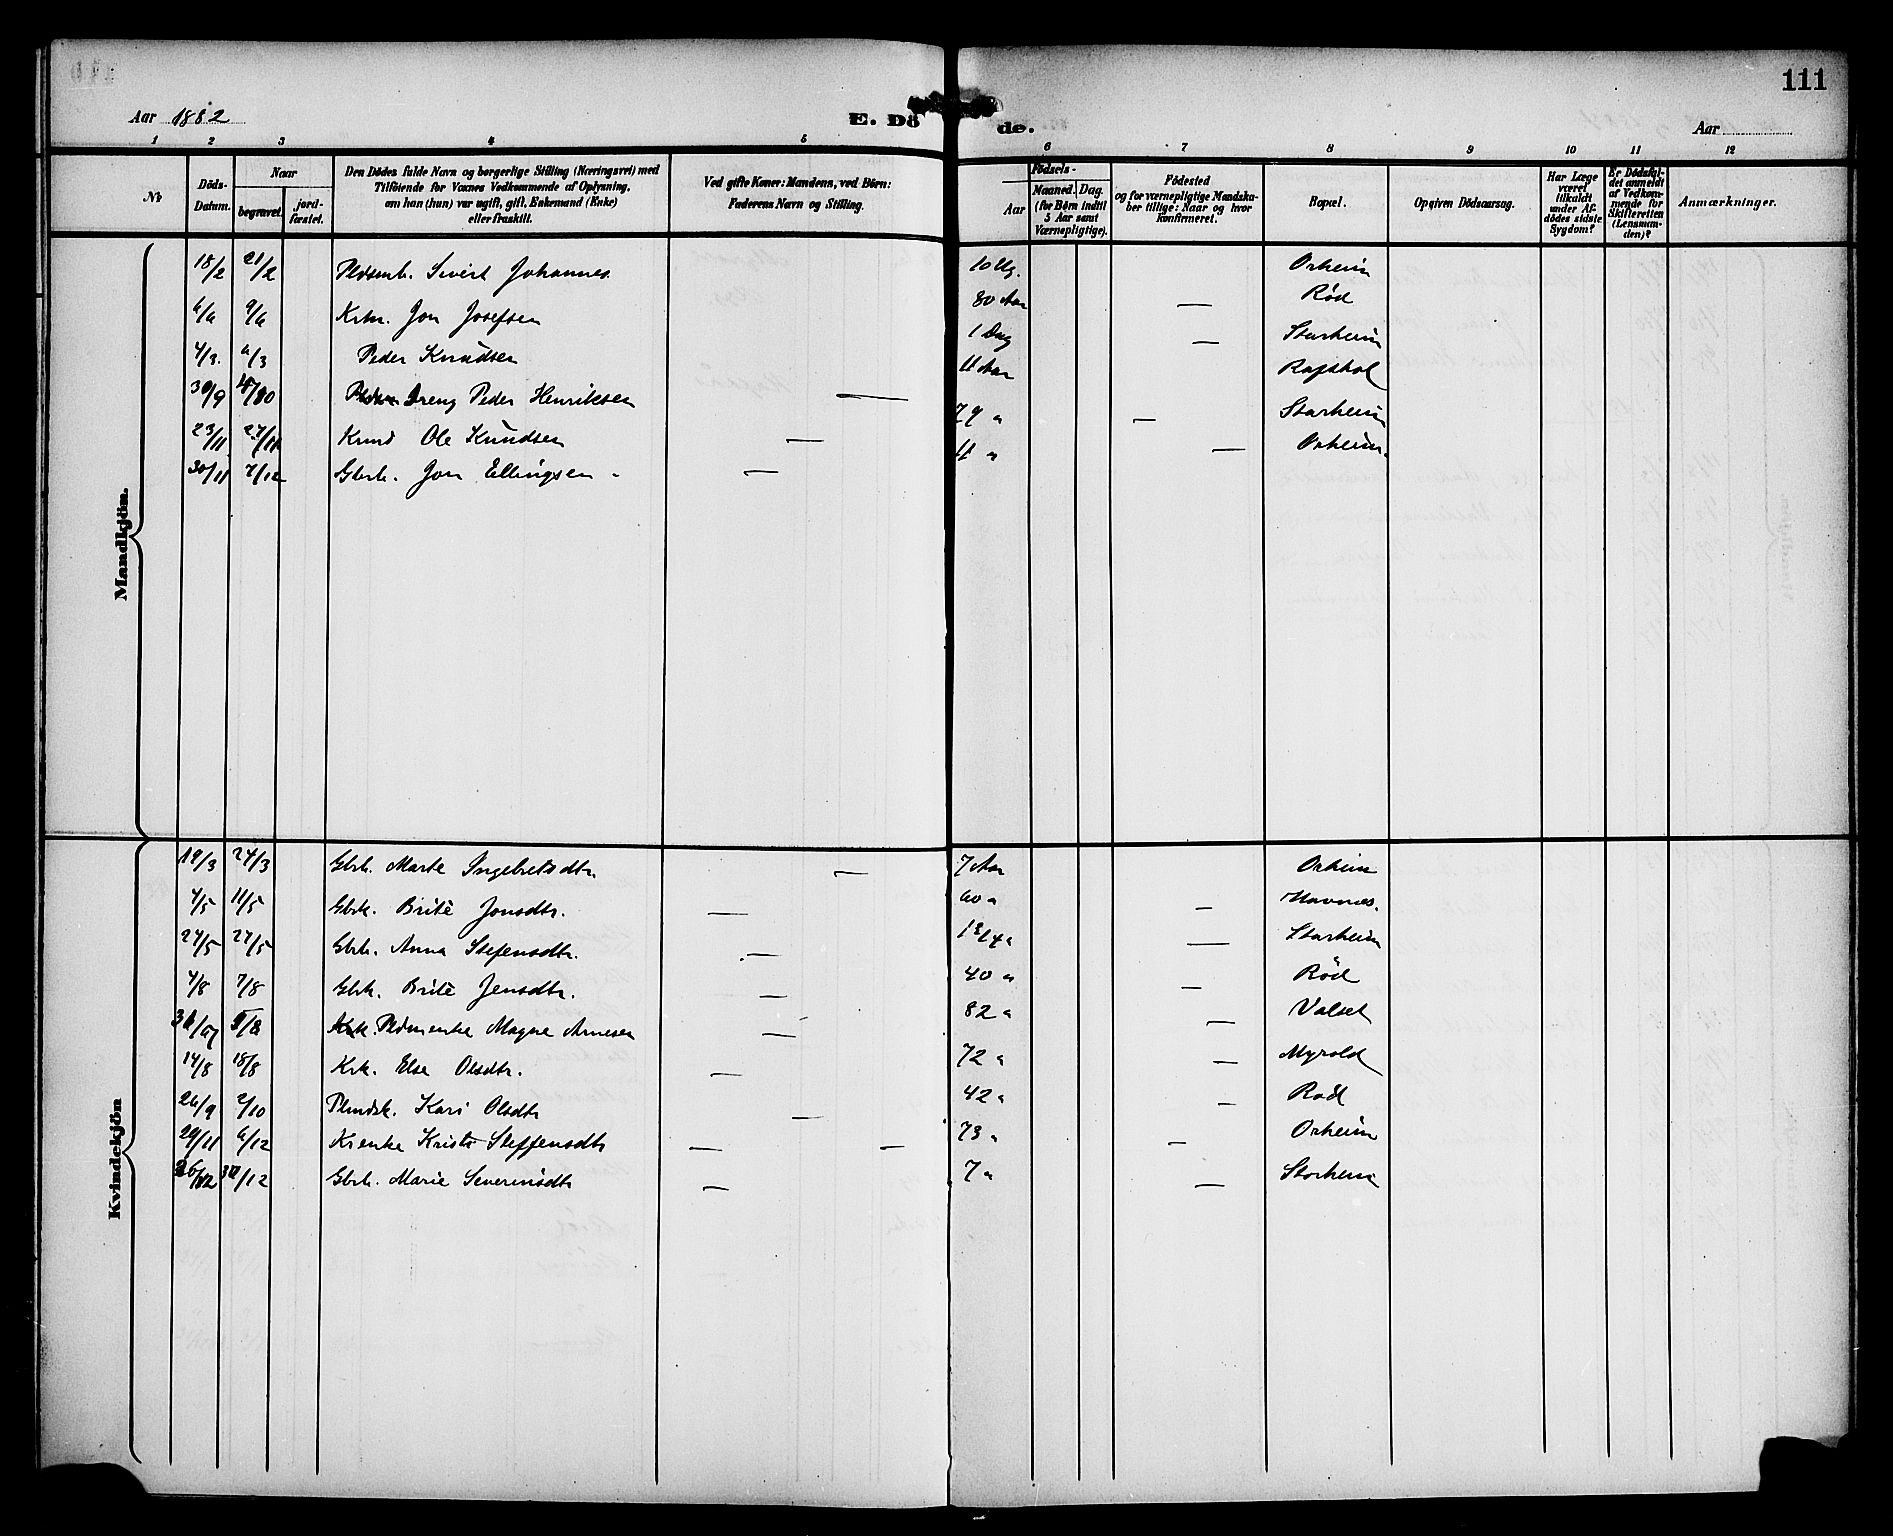 111
Aar 1882
E. Dö de.
Aar
1 2 3 4 5 6 7 8 9 10 11 12
№
Döds-Datum.
Naar
begravet.
jord-fæstet.
Den Dödes fulde Navn og borgerlige Stilling (Næringsvei) med
Tilföiende for Voxnes Vedkommende af Oplysning,
om han (hun) var ugift, gift, Enkemand (Enke)
eller fraskilt.
Ved gifte Koner: Mandens, ved Börn:
Faderens Navn og Stilling.
Födsels-
Aar
Maaned. Dag.
(for Børn indtil
5 Aar samt
Værnepligtige).
Födested
og for værnepligtige Mandska-
ber tillige: Naar og hvor
konfirmeret.
Bopæl.
Opgiven Dödsaarsag.
Har Læge
været
tilkaldt
under Af-
dødes sidste
Sygdom?
Er Dödsfal-
det anmeldt
af Vedkom-
mende for
Skifteretten
(Lensman-
den)?
Anmærkninger.
Mandkjön.
18/2 21/2 Sivert Johannes 10 Ug. Orheim
6/6 9/6 Krm. Jon Josefsen 80 Aar — Rød
4/3. 6/3 Peder Knudsen 1 Dag — Starheim
30/9 Dreng Peder Henriksen — 11 Aar Rafshol
23/11 27/11 Ole Knudsen — 79 " — Starheim
30/11 7/12 Gbrb. Jon Ellingsen — 11 " — Orheim.
Kvindekjön
19/3 24/3 Gbrb. Marte Ingebretsdtr. — 7 Aar Orheim
4/5 11/5 Gbrk. Brite Jonsdtr. — 60 " — Havnes.
24/5 27/5 Gbrb. Anna Stefensdtr. — 13/4 " — Starheim
4/8 7/8 Gbrk. Brite Jensdtr. — 40 " — Rød
5/8 Magne Arnesen — 82 " — Valset
14/8 18/8 Krk. Else Olsdtr. — 72 " — Myrold
26/9 2/10 Kari Olsdtr — 42 " — Rød
29/11 6/12 Krenke Kristi Steffensdtr — — 73 " — Orheim
26/12 30/12 Gbrb. Marie Severinsdtr — 7 " — Starheim